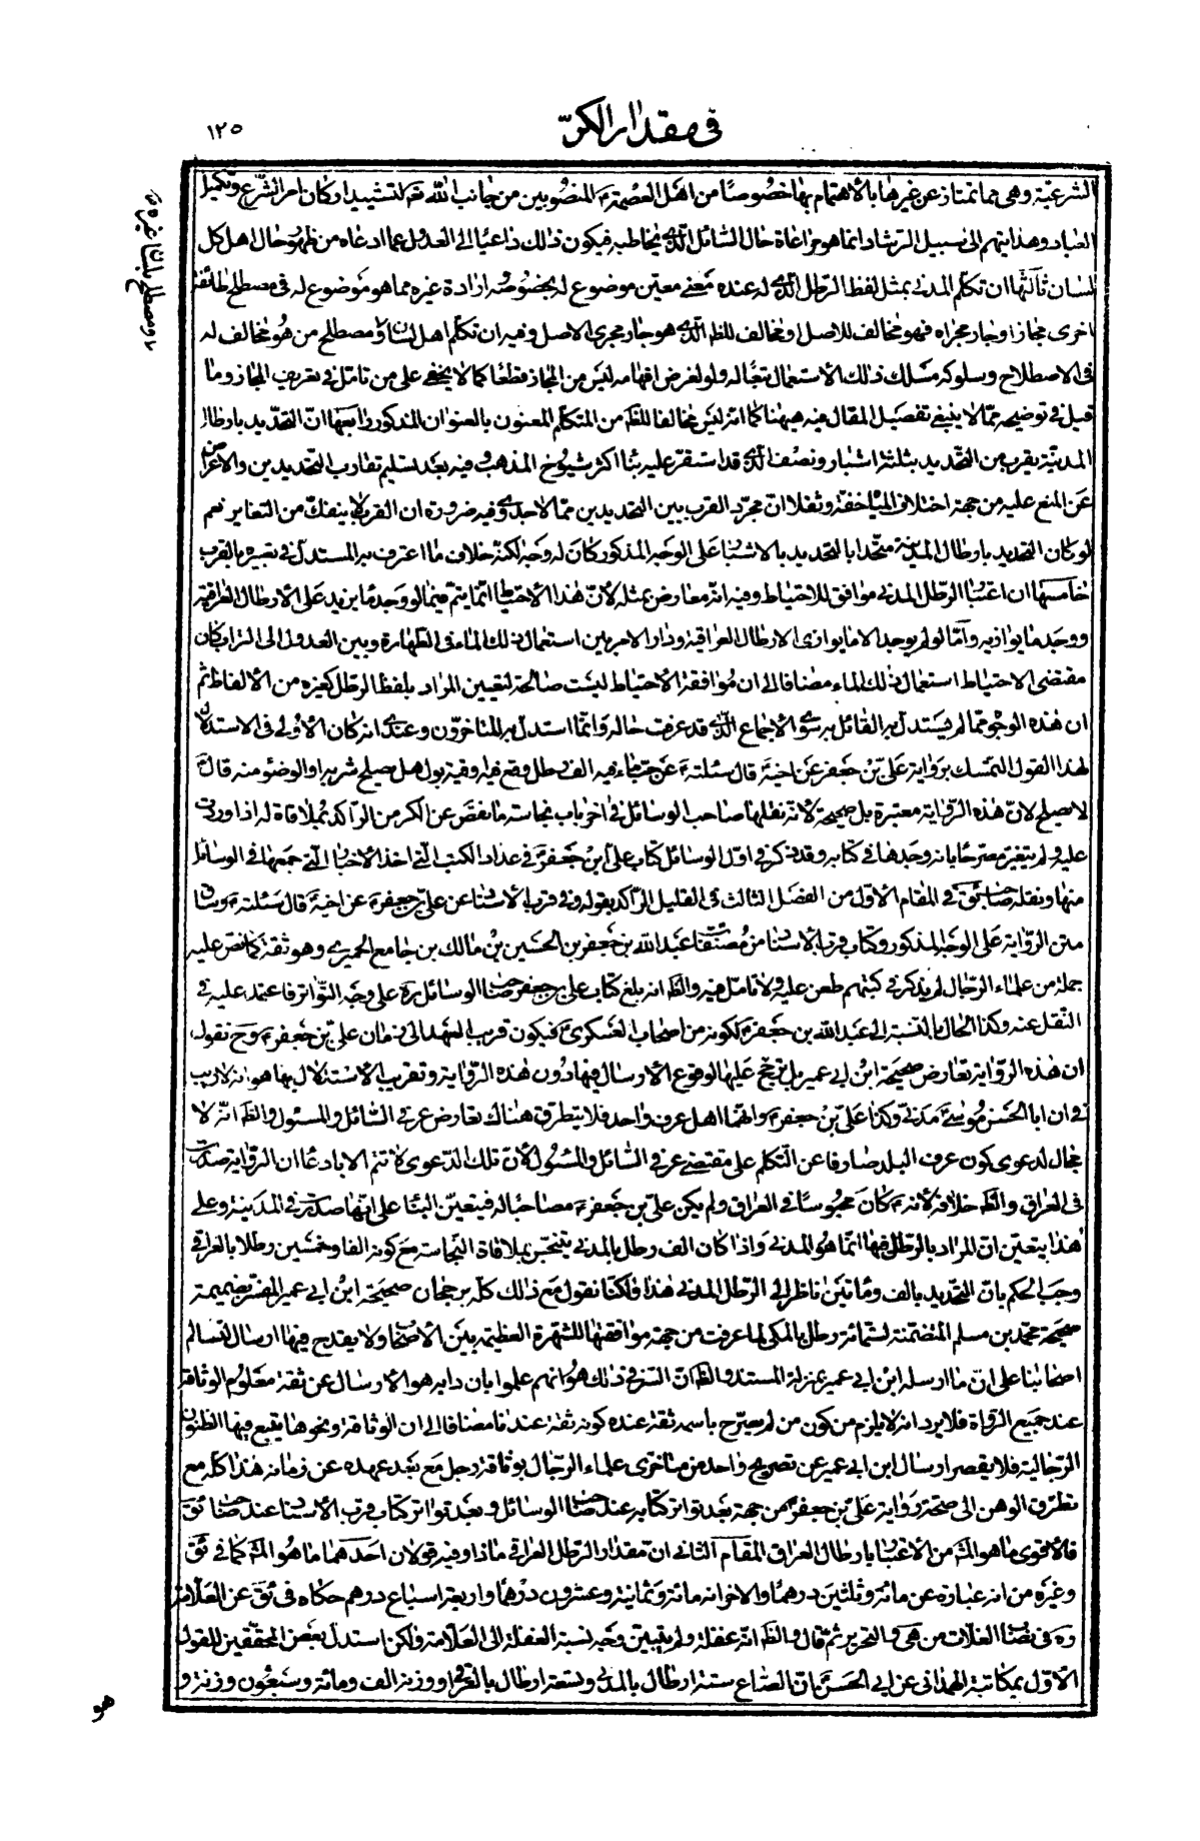 في مقدار الكر
١٢٥
الشرعية وهى مما تمتاز عن غيرها بالاهتمام بها خصوصا من اهل العصمة المنصوبين من جانب الله تعم لتشييد اركان امر الشرع وتكميل
العباد وهدايتهم الى سبيل الرشاد انما هو مراعاة حال السائل الذي يخاطبه فيكون ذلك داعيا الى العدول عما ادعاه من ظهور حال اهل كل
لسان ثالثها ان تكلم المدني بمثل لفظ الرطل الذي له عنده معنى معين موضوع له بخصوصه ارادة غيره مما هو موضوع له في مصطلح طائفة
اخرى مجازا وجار مجراه فهو مخالف للاصل او مخالف للظم الذي هو جار مجرى الاصل وفيه ان تكلم اهل لسان او مصطلح من هو مخالف له
في الاصطلاح وسلوكه مسلك ذلك الاستعمال تبعا له ولو لغرض افهامه ليس من المجاز قطعا كما لا يخفى على من تامل في تعريف المجاز وما
قيل في توضيحه مما لا ينبغي تفصيل المقال فيه هيهنا كما انه ليس مخالفا للظم من المتكلم المعنون بالعنوان المذكور رابعها ان التحديد بارطال
المدينة يقرب من التحديد بثلثة اشبار ونصف الذي قد استقر عليه بناء اكثر شيوخ المذهب وفيه بعد تسليم تقارب التحديدين والاغراض
عن المنع عليه من جهة اختلاف المياه خفة وثقلا ان مجرد القرب بين التحديدين مما لا يجدي وفيه ضرورة ان القرب لا ينفك من التغاير نعم
لو كان التحديد بارطال المدينة متحدا بالتحديد بالاشبار على الوجه المذكور كان له وجه لكنه خلاف ما اعترف به المستدل في تعبيره بالقرب
خامسها ان اعتبار الرطل المدني موافق للاحتياط وفيه انه معارض بمثله لان هذا الاحتياط انما يتم فيما لو وجد ما يزيد على الارطال العراقية
ووجد ما يوازيه واما لو لم يوجد الا ما يوازى الارطال العراقية ودار الامر بين استعمال ذلك الماء في الطهارة وبين العدول الى التراب كان
مقتضى الاحتياط استعمال ذلك الماء مضافا الى ان موافقة الاحتياط ليست صالحة لتعيين المراد بلفظ الرطل كغيره من الالفاظ ثم
ان هذه الوجوه مما لم يستدل به القائل به سوى الاجماع الذي قد عرفت حاله وانما استدل به المتاخرون وعندي انه كان الاولى في الاستدلال
لهذا القول التمسك برواية على بن جعفر عن اخيه قال سئلته عن جب ماء فيه الف رطل وقع فيه اوقية بول هل يصلح شربه او الوضوء منه قال
لا يصلح لان هذه الرواية معتبرة بل صحيحة لانه نقلها صاحب الوسائل في اخر باب نجاسة ما نقص عن الكر من الراكد بملاقاة له اذا وردت
عليه ولم يتغير مصرحا بانه وجدها في كتابه وقد ذكر في اول الوسائل كتاب على بن جعفر في عداد الكتب التي اخذ الاخبار التي جمعها في الوسائل
منها ونقله صاحب ئق في المقام الاول من الفصل الثالث في القليل الراكد بقوله وفي قرب الاسناد عن على بن جعفر عن اخيه قال سئلته وساق
متن الرواية على الوجه المذكور وكتاب قرب الاسناد من مصنفات عبد الله بن جعفر بن الحسين بن مالك بن جامع الحميري وهو ثقة كما نص عليه
جملة من علماء الرجال لم يذكر في كتبهم طعن عليه ولا تامل فيه والظم انه بلغ كتاب على بن جعفر صاحب الوسائل ره على وجه التواتر فاعتمد عليه في
النقل عنه وكذا الحال بالنسبة الى عبد الله بن جعفر لكونه من اصحاب العسكري فيكون قريب العهد الى زمان على بن جعفر وح نقول
ان هذه الرواية تعارض صحيحة ابن ابى عمير بل ترجح عليها لوقوع الارسال فيها دون هذه الرواية وتقريب الاستدلال بها هو انه لا ريب
في ان ابا الحسن موسى مدني وكذا على بن جعفر وانهما اهل عرف واحد فلا يتطرق هناك تعارض عرفي السائل والمسئول والظم انه لا
مجال لدعوى كون عرف البلد صارفا عن التكلم على مقتضى عرفي السائل والمسئول لان تلك الدعوى لا تتم الا بادعاء ان الرواية صدرت
في العراق والظم خلافه لانه كان محبوسا في العراق ولم يكن على بن جعفر مصاحبا له فيتعين البناء على انها صدرت في المدينة وعلى
هذا يتعين ان المراد بالرطل فيها انما هو المدني واذا كان الف رطل بالمدني يتنجس بملاقاة النجاسة مع كونه الفا وخمسين رطلا بالعراقي
وجب الحكم بان التحديد بالف ومائتين ناظر الى الرطل المدني هذا ولكنا نقول مع ذلك كله برجحان صحيحة ابن ابي عمير المفسر بضميمة
صحيحة محمد بن مسلم المتضمنة لستمائة رطل بالمكي لما عرفت من جهة موافقتها للشهرة العظيمة بين الاصحاب ولا يقدح فيها ارسال لتسالم
اصحابنا على ان ما ارسله ابن ابي عمير بمنزلة المستند والظم ان السر في ذلك هو انهم علموا بان دابه هو الارسال عن ثقة معلوم الوثاقة
عند جميع الرواة فلا يرد انه لا يلزم من كون من لم يصرح باسمه ثقة عنده كونه ثقة عندنا مضافا الى ان الوثاقة ونحوها يتبع فيها الظنون
الرجالية فلا يقصر ارسال ابن ابي عمير عن تصريح واحد من متاخرى علماء الرجال بوثاقة رجل مع بعد عهده عن زمانه هذا كله مع
تطرق الوهن الى صحة رواية على بن جعفر من جهة بعد تواتر كتابه عند صاحب الوسائل وبعد تواتر كتاب قرب الاسناد عند صاحب ئق
فالاقوى ما هو المش من الاعتبار بارطال العراق المقام الثاني ان مقدار الرطل العراقي ماذا وفيه قولان احدهما ما هو المش كما في ئق
وغيره من انه عبارة عن مائة وثلثين درهما والاخر انه مائة وثمانية وعشرون درهما واربعة اسباع درهم حكاه في ئق عن العلامة
ره في نصاب الغلات من هي والتحرير ثم قال والظم انه غفلة ولم يتبين وجه نسبة الغفلة الى العلامة ولكن استدل بعض المحققين للقول
الاول بمكاتبة الهمداني عن ابي الحسن ان الصاع ستة ارطال بالمدني وتسعة ارطال بالعراقي ووزنه الف ومائة وسبعون وزنة و
هو